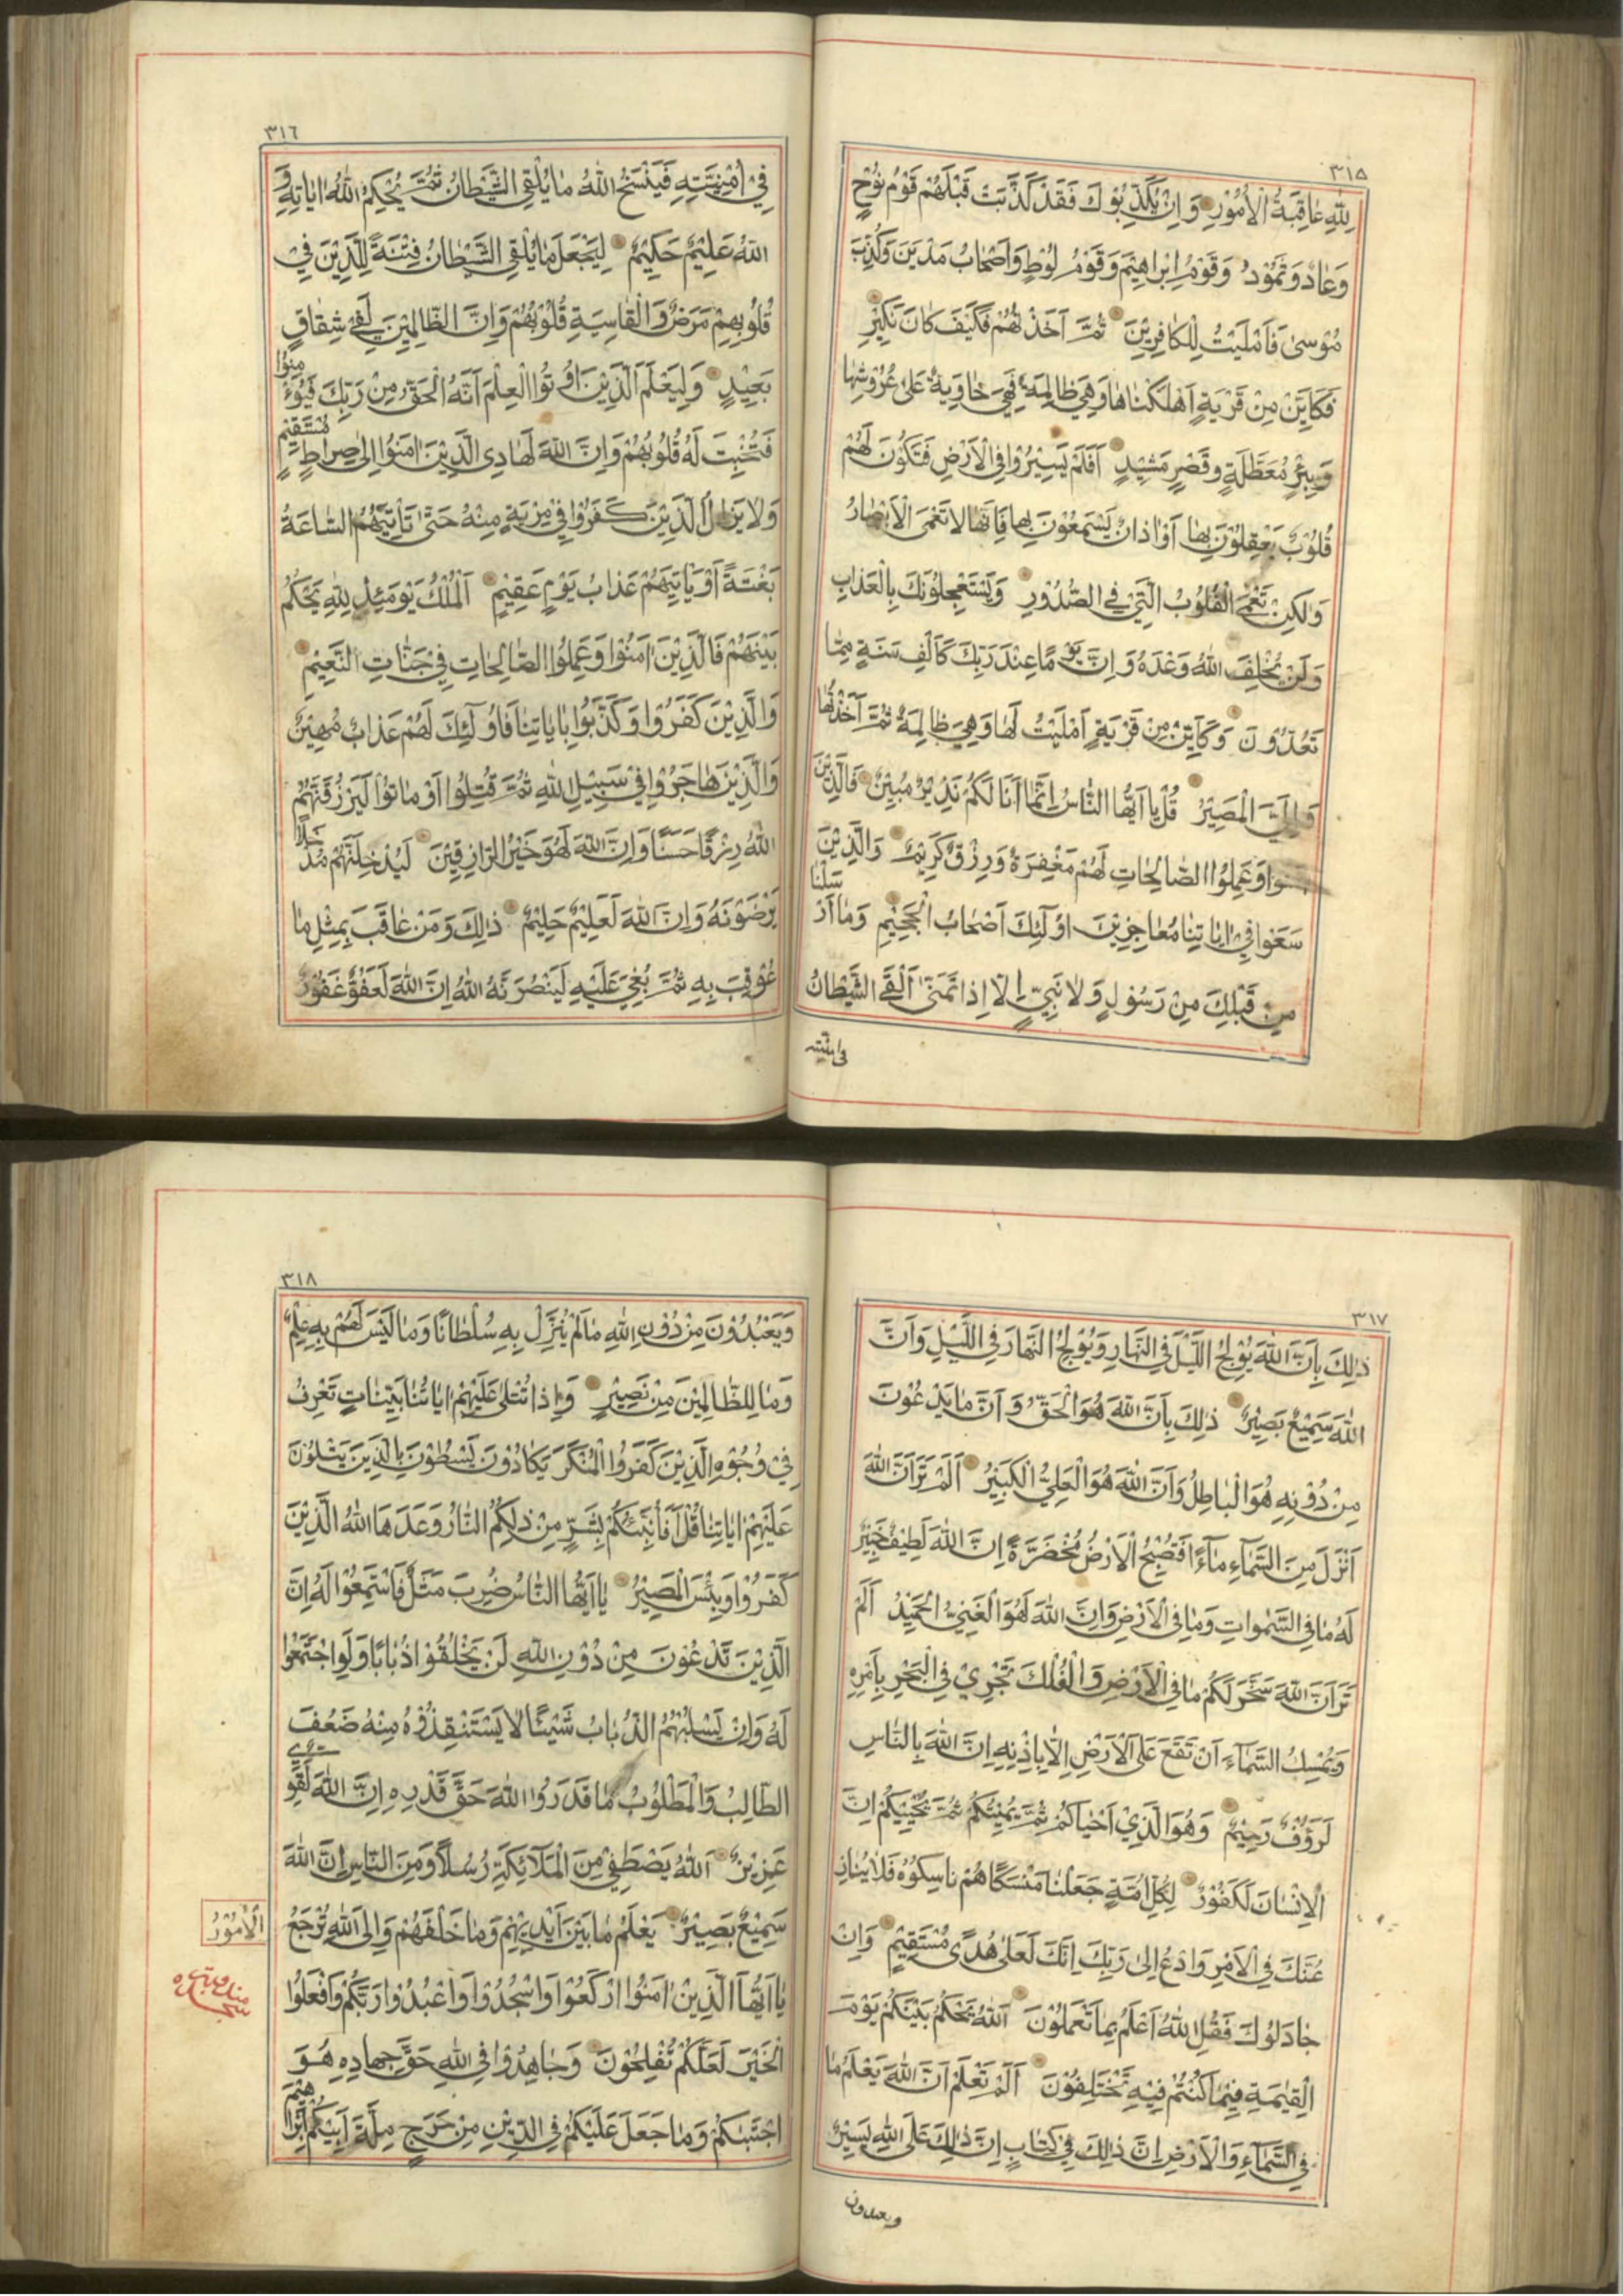 ٣١٥
لِلّٰهِ عَاقِبَةُ الْأُمُوْرِ وَاِنْ يُكَذِّبُوْكَ فَقَدْ كَذَّبَتْ قَبْلَهُمْ قَوْمُ نُوْحٍ
وَعَادٌ وَثَمُوْدُ وَقَوْمُ اِبْرَاهِيْمَ وَقَوْمُ لُوْطٍ وَاَصْحَابُ مَدْيَنَ وَكُذِّبَ
مُوْسٰى فَاَمْلَيْتُ لِلْكَافِرِيْنَ ثُمَّ اَخَذْتُهُمْ فَكَيْفَ كَانَ نَكِيْرِ
فَكَاَيِّنْ مِنْ قَرْيَةٍ اَهْلَكْنَاهَا وَهِيَ ظَالِمَةٌ فَهِيَ خَاوِيَةٌ عَلٰى عُرُوْشِهَا
وَبِئْرٍ مُعَطَّلَةٍ وَقَصْرٍ مَشِيْدٍ اَفَلَمْ يَسِيْرُوْا فِي الْاَرْضِ فَتَكُوْنَ لَهُمْ
قُلُوْبٌ يَعْقِلُوْنَ بِهَا اَوْ اٰذَانٌ يَسْمَعُوْنَ بِهَا فَاِنَّهَا لَا تَعْمَى الْاَبْصَارُ
وَلٰكِنْ تَعْمَى الْقُلُوْبُ الَّتِيْ فِي الصُّدُوْرِ وَيَسْتَعْجِلُوْنَكَ بِالْعَذَابِ
وَلَنْ يُخْلِفَ اللّٰهُ وَعْدَهُ وَاِنَّ يَوْمًا عِنْدَ رَبِّكَ كَاَلْفِ سَنَةٍ مِمَّا
تَعُدُّوْنَ وَكَاَيِّنْ مِنْ قَرْيَةٍ اَمْلَيْتُ لَهَا وَهِيَ ظَالِمَةٌ ثُمَّ اَخَذْتُهَا
وَاِلَيَّ الْمَصِيْرُ قُلْ يَا اَيُّهَا النَّاسُ اِنَّمَا اَنَا لَكُمْ نَذِيْرٌ مُبِيْنٌ فَالَّذِيْنَ
اٰمَنُوْا وَعَمِلُوا الصَّالِحَاتِ لَهُمْ مَغْفِرَةٌ وَرِزْقٌ كَرِيْمٌ وَالَّذِيْنَ
سَعَوْا فِيْ اٰيَاتِنَا مُعَاجِزِيْنَ اُولٰٓئِكَ اَصْحَابُ الْجَحِيْمِ وَمَا اَرْسَلْنَا
مِنْ قَبْلِكَ مِنْ رَسُوْلٍ وَلَا نَبِيٍّ اِلَّا اِذَا تَمَنّٰى اَلْقَى الشَّيْطَانُ
في امنيته
٣١٦
فِيْ اُمْنِيَّتِهِ فَيَنْسَخُ اللّٰهُ مَا يُلْقِي الشَّيْطَانُ ثُمَّ يُحْكِمُ اللّٰهُ اٰيَاتِهِ وَ
اللّٰهُ عَلِيْمٌ حَكِيْمٌ لِيَجْعَلَ مَا يُلْقِي الشَّيْطَانُ فِتْنَةً لِلَّذِيْنَ فِيْ
قُلُوْبِهِمْ مَرَضٌ وَالْقَاسِيَةِ قُلُوْبُهُمْ وَاِنَّ الظَّالِمِيْنَ لَفِيْ شِقَاقٍ
بَعِيْدٍ وَلِيَعْلَمَ الَّذِيْنَ اُوْتُوا الْعِلْمَ اَنَّهُ الْحَقُّ مِنْ رَبِّكَ فَيُؤْمِنُوْا
فَتُخْبِتَ لَهُ قُلُوْبُهُمْ وَاِنَّ اللّٰهَ لَهَادِ الَّذِيْنَ اٰمَنُوْا اِلٰى صِرَاطٍ مُسْتَقِيْمٍ
وَلَا يَزَالُ الَّذِيْنَ كَفَرُوْا فِيْ مِرْيَةٍ مِنْهُ حَتّٰى تَأْتِيَهُمُ السَّاعَةُ
بَغْتَةً اَوْ يَأْتِيَهُمْ عَذَابُ يَوْمٍ عَقِيْمٍ اَلْمُلْكُ يَوْمَئِذٍ لِلّٰهِ يَحْكُمُ
بَيْنَهُمْ فَالَّذِيْنَ اٰمَنُوْا وَعَمِلُوا الصَّالِحَاتِ فِيْ جَنَّاتِ النَّعِيْمِ
وَالَّذِيْنَ كَفَرُوْا وَكَذَّبُوْا بِاٰيَاتِنَا فَاُولٰٓئِكَ لَهُمْ عَذَابٌ مُهِيْنٌ
وَالَّذِيْنَ هَاجَرُوْا فِيْ سَبِيْلِ اللّٰهِ ثُمَّ قُتِلُوْا اَوْ مَاتُوْا لَيَرْزُقَنَّهُمُ
اللّٰهُ رِزْقًا حَسَنًا وَاِنَّ اللّٰهَ لَهُوَ خَيْرُ الرَّازِقِيْنَ لَيُدْخِلَنَّهُمْ مُدْخَلًا
يَرْضَوْنَهُ وَاِنَّ اللّٰهَ لَعَلِيْمٌ حَلِيْمٌ ذٰلِكَ وَمَنْ عَاقَبَ بِمِثْلِ مَا
عُوْقِبَ بِهِ ثُمَّ بُغِيَ عَلَيْهِ لَيَنْصُرَنَّهُ اللّٰهُ اِنَّ اللّٰهَ لَعَفُوٌّ غَفُوْرٌ
٣١٧
ذٰلِكَ بِاَنَّ اللّٰهَ يُوْلِجُ اللَّيْلَ فِي النَّهَارِ وَيُوْلِجُ النَّهَارَ فِي اللَّيْلِ وَاَنَّ
اللّٰهَ سَمِيْعٌ بَصِيْرٌ ذٰلِكَ بِاَنَّ اللّٰهَ هُوَ الْحَقُّ وَاَنَّ مَا يَدْعُوْنَ
مِنْ دُوْنِهِ هُوَ الْبَاطِلُ وَاَنَّ اللّٰهَ هُوَ الْعَلِيُّ الْكَبِيْرُ اَلَمْ تَرَ اَنَّ اللّٰهَ
اَنْزَلَ مِنَ السَّمَآءِ مَآءً فَتُصْبِحُ الْاَرْضُ مُخْضَرَّةً اِنَّ اللّٰهَ لَطِيْفٌ خَبِيْرٌ
لَهُ مَا فِي السَّمٰوَاتِ وَمَا فِي الْاَرْضِ وَاِنَّ اللّٰهَ لَهُوَ الْغَنِيُّ الْحَمِيْدُ اَلَمْ
تَرَ اَنَّ اللّٰهَ سَخَّرَ لَكُمْ مَا فِي الْاَرْضِ وَالْفُلْكَ تَجْرِيْ فِي الْبَحْرِ بِاَمْرِهِ
وَيُمْسِكُ السَّمَآءَ اَنْ تَقَعَ عَلَى الْاَرْضِ اِلَّا بِاِذْنِهِ اِنَّ اللّٰهَ بِالنَّاسِ
لَرَؤُفٌ رَحِيْمٌ وَهُوَ الَّذِيْ اَحْيَاكُمْ ثُمَّ يُمِيْتُكُمْ ثُمَّ يُحْيِيْكُمْ اِنَّ
الْاِنْسَانَ لَكَفُوْرٌ لِكُلِّ اُمَّةٍ جَعَلْنَا مَنْسَكًا هُمْ نَاسِكُوْهُ فَلَا يُنَازِ
عُنَّكَ فِي الْاَمْرِ وَادْعُ اِلٰى رَبِّكَ اِنَّكَ لَعَلٰى هُدًى مُسْتَقِيْمٍ وَاِنْ
جَادَلُوْكَ فَقُلِ اللّٰهُ اَعْلَمُ بِمَا تَعْمَلُوْنَ اَللّٰهُ يَحْكُمُ بَيْنَكُمْ يَوْمَ
الْقِيٰمَةِ فِيْمَا كُنْتُمْ فِيْهِ تَخْتَلِفُوْنَ اَلَمْ تَعْلَمْ اَنَّ اللّٰهَ يَعْلَمُ مَا
فِي السَّمَآءِ وَالْاَرْضِ اِنَّ ذٰلِكَ فِيْ كِتَابٍ اِنَّ ذٰلِكَ عَلَى اللّٰهِ يَسِيْرٌ
ويعبدون
٣١٨
وَيَعْبُدُوْنَ مِنْ دُوْنِ اللّٰهِ مَا لَمْ يُنَزِّلْ بِهِ سُلْطَانًا وَمَا لَيْسَ لَهُمْ بِهِ عِلْمٌ
وَمَا لِلظَّالِمِيْنَ مِنْ نَصِيْرٍ وَاِذَا تُتْلٰى عَلَيْهِمْ اٰيَاتُنَا بَيِّنَاتٍ تَعْرِفُ
فِيْ وُجُوْهِ الَّذِيْنَ كَفَرُوا الْمُنْكَرَ يَكَادُوْنَ يَسْطُوْنَ بِالَّذِيْنَ يَتْلُوْنَ
عَلَيْهِمْ اٰيَاتِنَا قُلْ اَفَاُنَبِّئُكُمْ بِشَرٍّ مِنْ ذٰلِكُمُ النَّارُ وَعَدَهَا اللّٰهُ الَّذِيْنَ
كَفَرُوْا وَبِئْسَ الْمَصِيْرُ يَا اَيُّهَا النَّاسُ ضُرِبَ مَثَلٌ فَاسْتَمِعُوْا لَهُ اِنَّ
الَّذِيْنَ تَدْعُوْنَ مِنْ دُوْنِ اللّٰهِ لَنْ يَخْلُقُوْا ذُبَابًا وَلَوِ اجْتَمَعُوْا
لَهُ وَاِنْ يَسْلُبْهُمُ الذُّبَابُ شَيْئًا لَا يَسْتَنْقِذُوْهُ مِنْهُ ضَعُفَ
الطَّالِبُ وَالْمَطْلُوْبُ مَا قَدَرُوا اللّٰهَ حَقَّ قَدْرِهِ اِنَّ اللّٰهَ لَقَوِيٌّ
عَزِيْزٌ اَللّٰهُ يَصْطَفِيْ مِنَ الْمَلٰٓئِكَةِ رُسُلًا وَمِنَ النَّاسِ اِنَّ اللّٰهَ
سَمِيْعٌ بَصِيْرٌ يَعْلَمُ مَا بَيْنَ اَيْدِيْهِمْ وَمَا خَلْفَهُمْ وَاِلَى اللّٰهِ تُرْجَعُ
الْاُمُوْرُ
يَا اَيُّهَا الَّذِيْنَ اٰمَنُوا ارْكَعُوْا وَاسْجُدُوْا وَاعْبُدُوْا رَبَّكُمْ وَافْعَلُوا
الْخَيْرَ لَعَلَّكُمْ تُفْلِحُوْنَ وَجَاهِدُوْا فِي اللّٰهِ حَقَّ جِهَادِهِ هُوَ
اجْتَبٰىكُمْ وَمَا جَعَلَ عَلَيْكُمْ فِي الدِّيْنِ مِنْ حَرَجٍ مِلَّةَ اَبِيْكُمْ اِبْرَاهِيْمَ